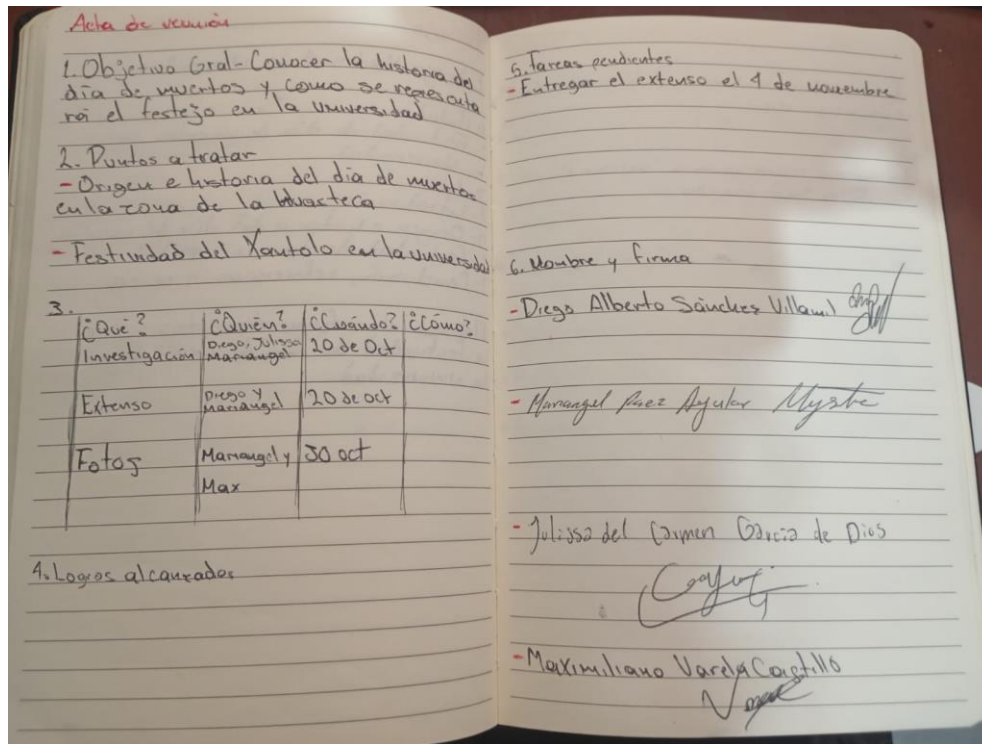 Acta de reunión
1. Objetivo Gral - Conocer la historia del
día de muertos y como se representa
rá el festejo en la universidad
2. Puntos a tratar
- Origen e historia del dia de muertos
en la zona de la Huasteca
- Festividad del Xantolo en la universidad
3.
¿Qué? ¿Quién? ¿Cuándo? ¿Cómo?
Investigación Diego, Julissa Mariangel 20 de Oct
Extenso Diego y Mariangel 20 de oct
Fotos Mariangel y Max 30 oct
4. Logros alcanzados
5. Tareas pendientes
- Entregar el extenso el 4 de noviembre
6. Nombre y firma
- Diego Alberto Sánchez Villamil
- Mariangel Paez Aguilar
- Julissa del Carmen García de Dios
- Maximiliano Varela Castillo